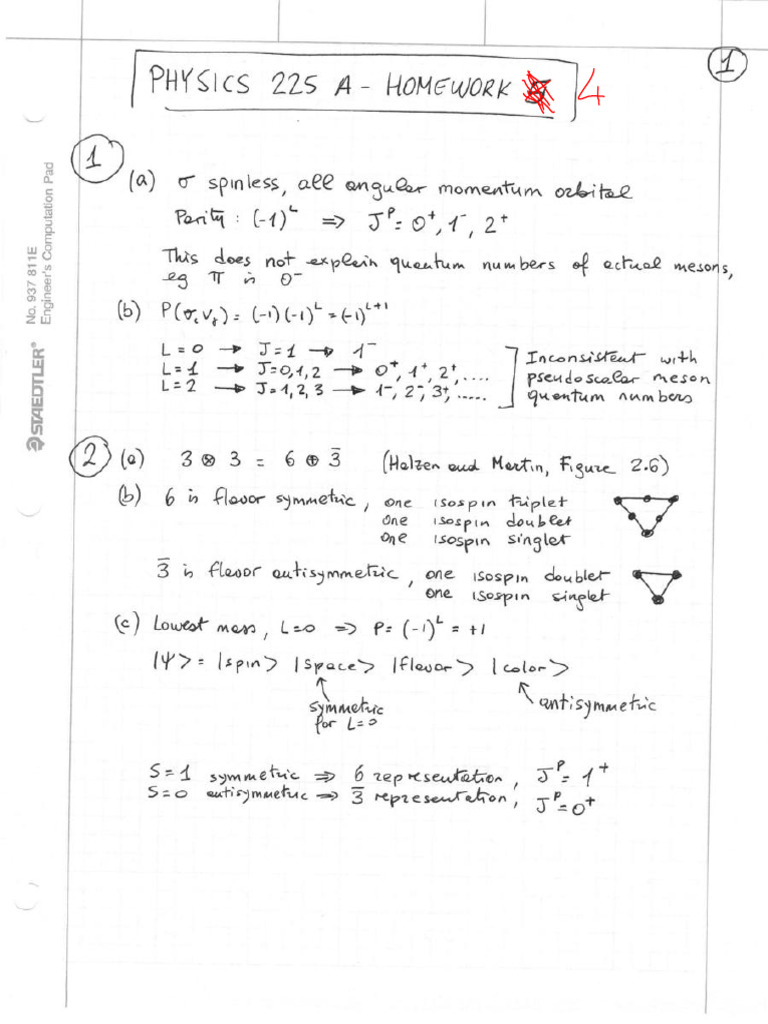 1
PHYSICS 225 A - HOMEWORK 4
1
(a) σ spinless, all angular momentum orbital
Parity : (-1)^L ⇒ J^P = 0⁺, 1⁻, 2⁺
This does not explain quantum numbers of actual mesons,
eg π is 0⁻
(b) P(σᵢ Vⱼ) = (-1)(-1)^L = (-1)^{L+1}
L = 0 → J = 1 → 1⁻
L = 1 → J = 0, 1, 2 → 0⁺, 1⁺, 2⁺, ....
L = 2 → J = 1, 2, 3 → 1⁻, 2⁻, 3⁻, .....
Inconsistent with
pseudoscalar meson
quantum numbers
2 (a) 3 ⊗ 3 = 6 ⊕ 3̄ (Halzen and Martin, Figure 2.6)
(b) 6 is flavor symmetric, one isospin triplet
one isospin doublet
one isospin singlet
3̄ is flavor antisymmetric, one isospin doublet
one isospin singlet
(c) Lowest mass, L=0 ⇒ P = (-1)^L = +1
|Ψ> = |spin> |space> |flavor> |color>
symmetric
for L=0
antisymmetric
S = 1 symmetric ⇒ 6 representation, J^P = 1⁺
S = 0 antisymmetric ⇒ 3̄ representation, J^P = 0⁺
STAEDTLER® No. 937 811E
Engineer's Computation Pad